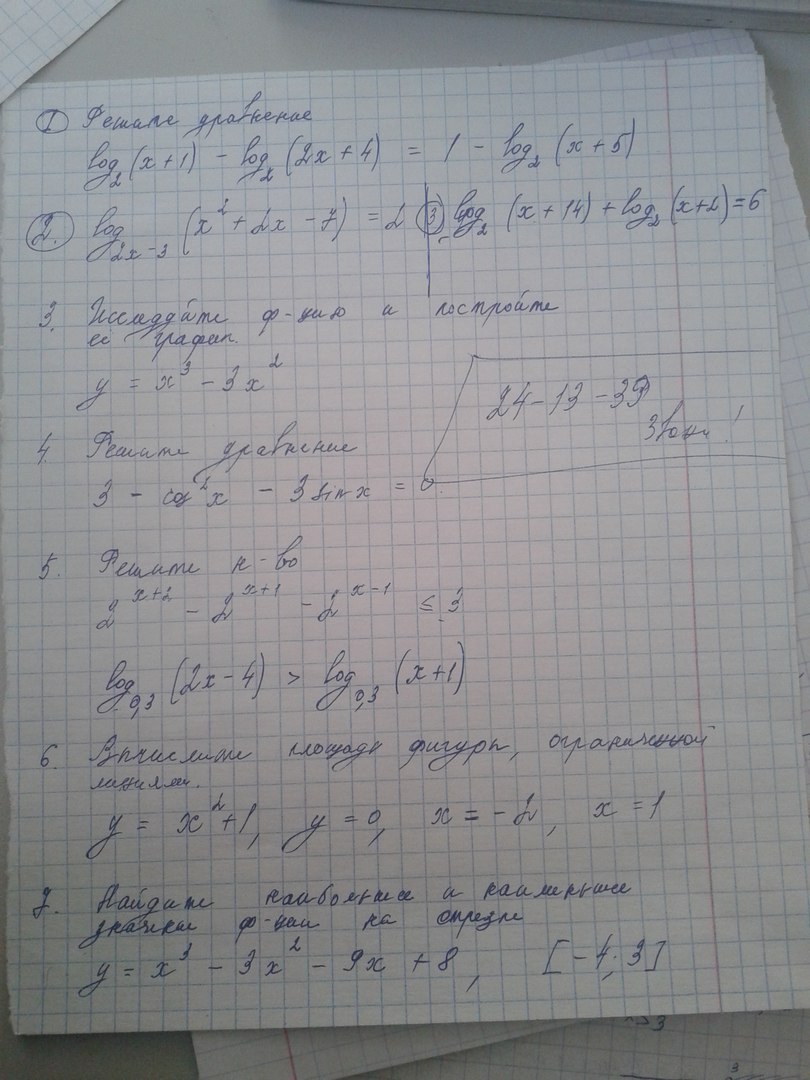 1 Решите уравнение
log₂(x+1) - log₂(2x+4) = 1 - log₂(x+5)
2. log₂ₓ₋₃(x²+2x-7) = 2 3 log₂(x+14) + log₂(x+2) = 6
3. Исследуйте ф-цию и постройте
её график.
y = x³ - 3x²
24-13-39
Звони!
4. Решите уравнение
3 - cos²x - 3sin x = 0
5. Решите н-во
2ˣ⁺² - 2ˣ⁺¹ - 2ˣ⁻¹ ≤ 3
log₀,₃(2x-4) > log₀,₃(x+1)
6. Вычислите площадь фигуры, ограниченной
линиями.
y = x²+1, y = 0, x = -2, x = 1
7. Найдите наибольшее и наименьшее
значение ф-ции на отрезке
y = x³ - 3x² - 9x + 8, [-4; 3]